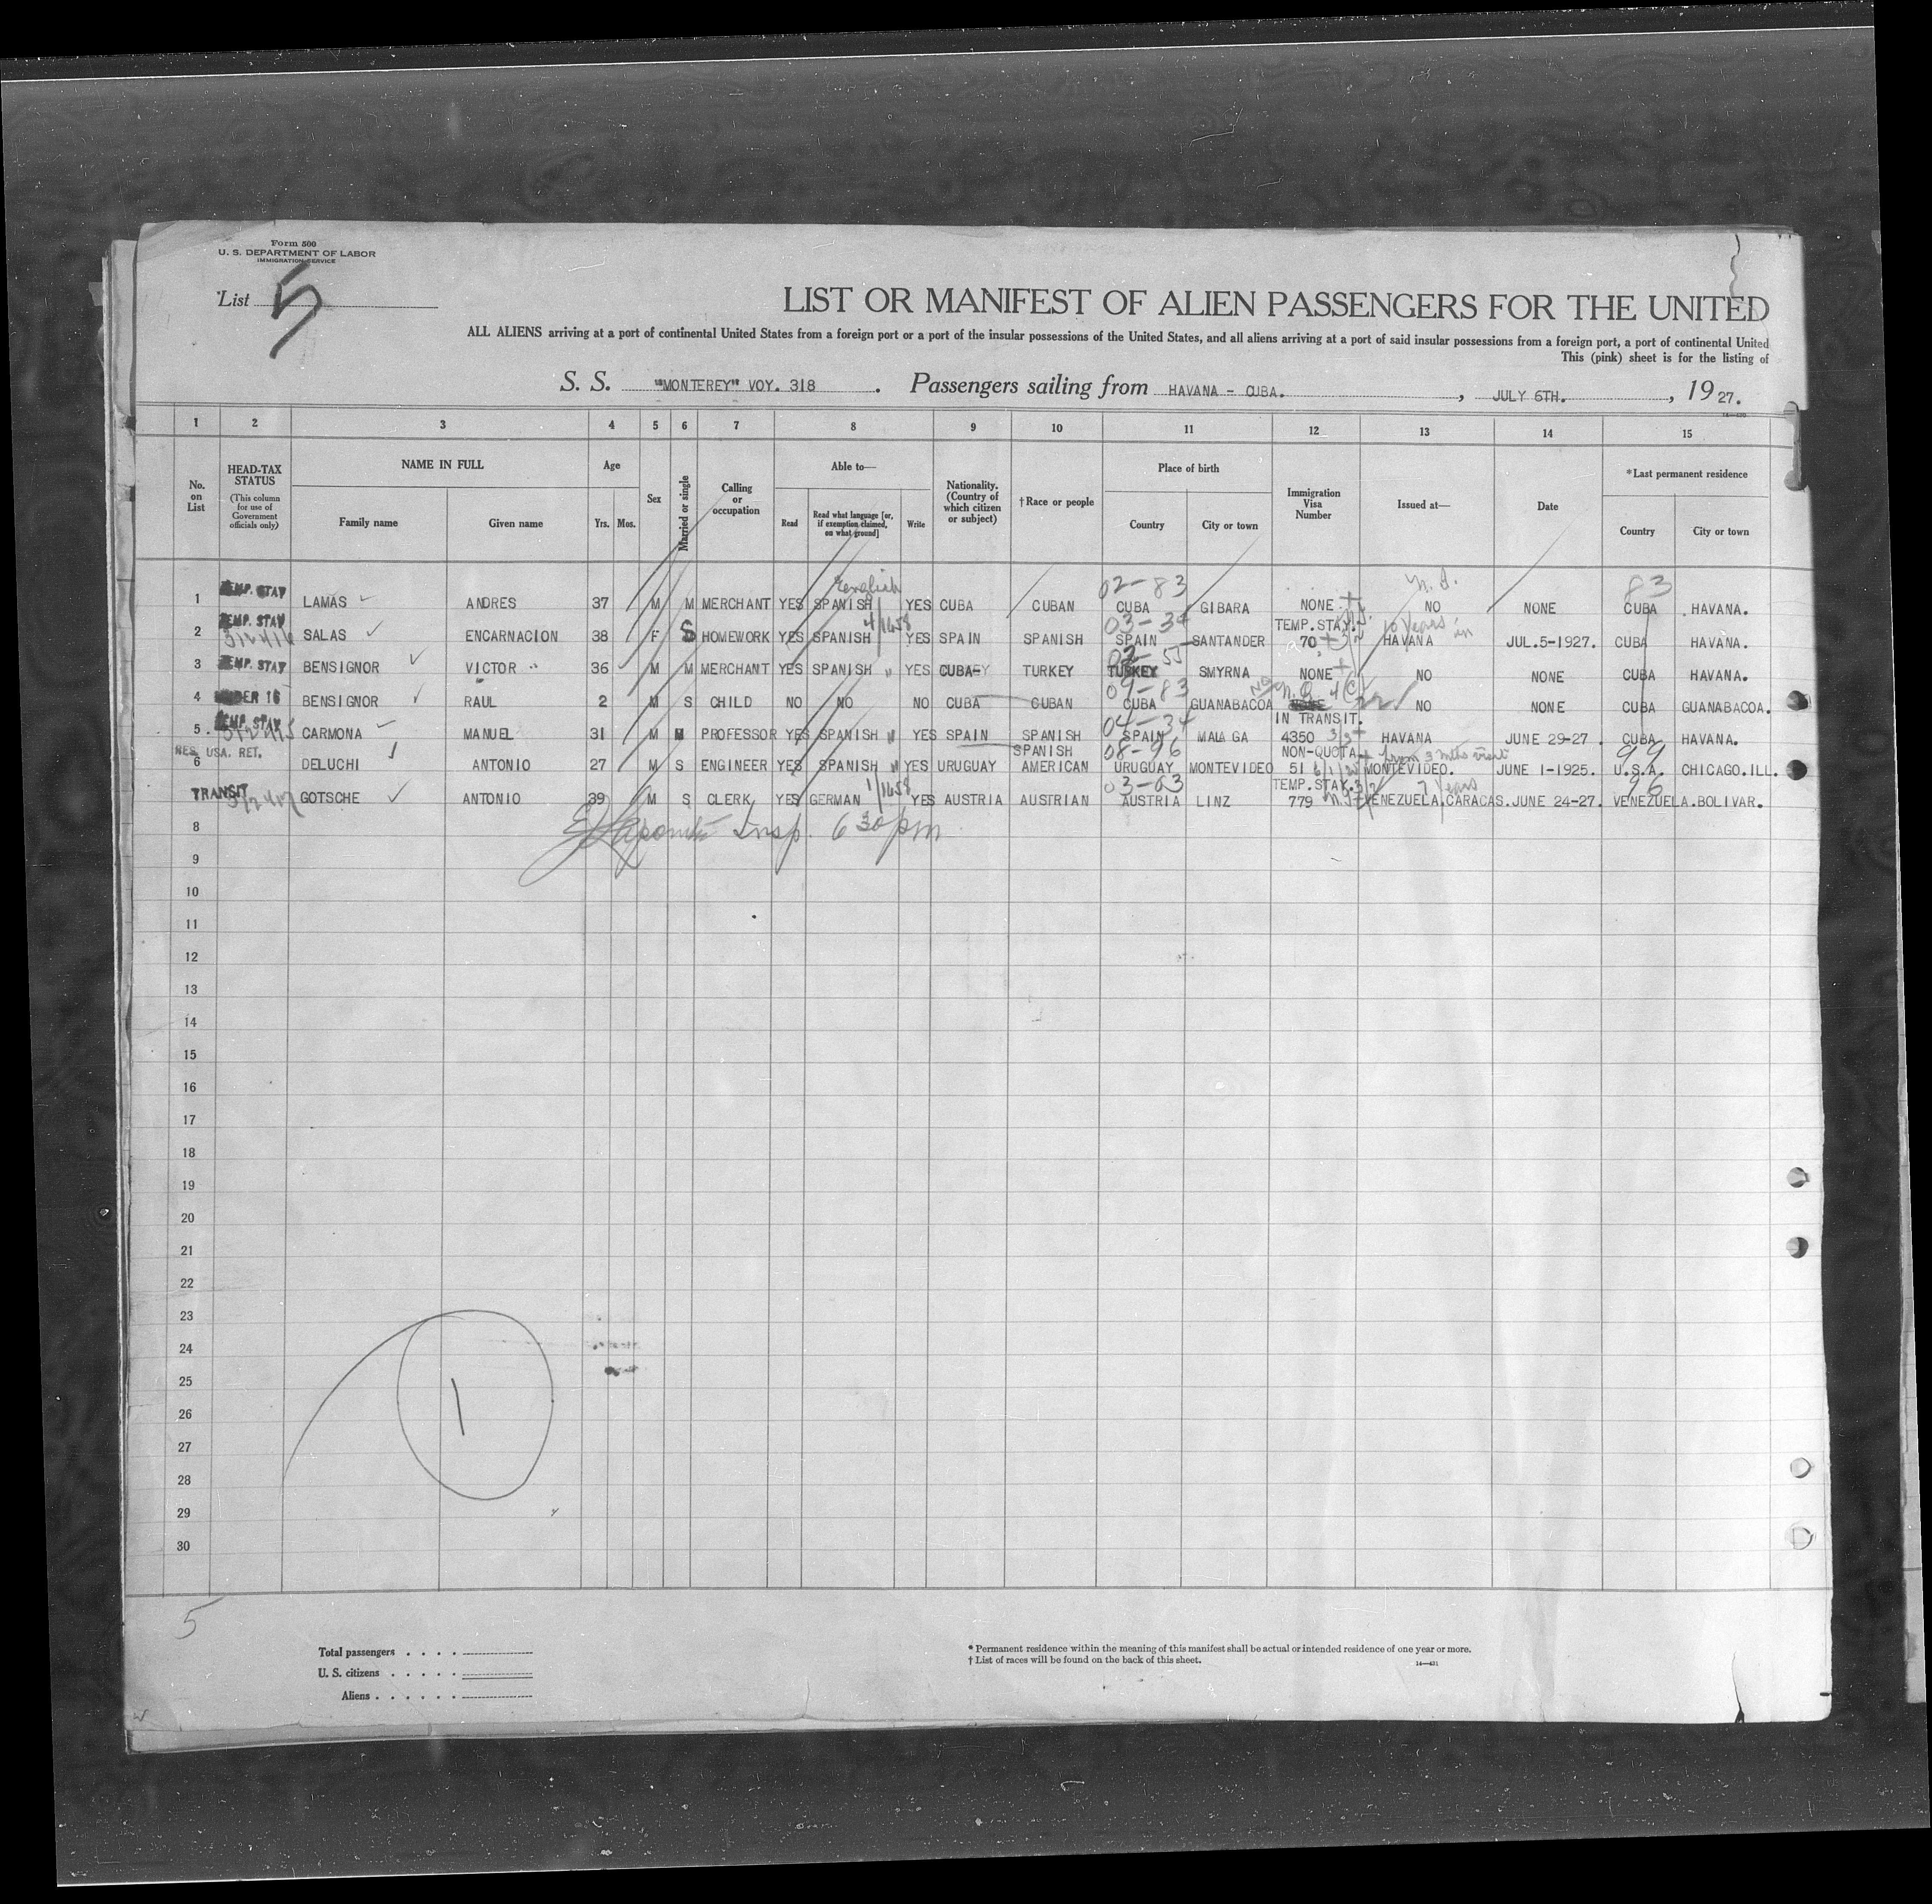 Form 500
U. S. DEPARTMENT OF LABOR
IMMIGRATION SERVICE
List 5
LIST OR MANIFEST OF ALIEN PASSENGERS FOR THE UNITED
ALL ALIENS arriving at a port of continental United States from a foreign port or a port of the insular possessions of the United States, and all aliens arriving at a port of said insular possessions from a foreign port, a port of continental United
This (pink) sheet is for the listing of
S. S. "MONTEREY" VOY. 318 . Passengers sailing from HAVANA - CUBA. , JULY 6TH. , 1927.
1 2 3 4 5 6 7 8 9 10 11 12 13 14 15
No. on List
HEAD-TAX STATUS (This column for use of Government officials only)
NAME IN FULL
Family name Given name
Age
Yrs. Mos.
Sex
Married or single
Calling or occupation
Able to—
Read Read what language [or, if exemption claimed, on what ground] Write
Nationality. (Country of which citizen or subject)
†Race or people
Place of birth
Country City or town
Immigration Visa Number
Issued at—
Date
*Last permanent residence
Country City or town
English 02-83 83
1 TEMP. STAY LAMAS ANDRES 37 M M MERCHANT YES SPANISH YES CUBA CUBAN CUBA GIBARA NONE NO NONE CUBA HAVANA.
TEMP. STAY 4/1658 03-34 TEMP.STAY. 10 years in
2 SALAS ENCARNACION 38 F S HOMEWORK YES SPANISH YES SPAIN SPANISH SPAIN SANTANDER 70 HAVANA JUL.5-1927. CUBA HAVANA.
3 TEMP. STAY BENSIGNOR VICTOR 36 M M MERCHANT YES SPANISH " YES CUBA TURKEY TURKEY SMYRNA NONE NO NONE CUBA HAVANA.
4 UNDER 16 BENSIGNOR RAUL 2 M S CHILD NO NO NO CUBA CUBAN CUBA GUANABACOA NONE NO NONE CUBA GUANABACOA.
TEMP. STAY 04-34 IN TRANSIT.
5. CARMONA MANUEL 31 M M PROFESSOR YES SPANISH " YES SPAIN SPANISH SPAIN MALAGA 4350 HAVANA JUNE 29-27. CUBA HAVANA.
RES. USA. RET. SPANISH 08-96 NON-QUOTA. 99
6 DELUCHI ANTONIO 27 M S ENGINEER YES SPANISH " YES URUGUAY AMERICAN URUGUAY MONTEVIDEO 51 MONTEVIDEO. JUNE 1-1925. U.S.A. CHICAGO.ILL.
1/1658 03-63 TEMP.STAY. 7 years 96
TRANSIT GOTSCHE ANTONIO 39 M S CLERK YES GERMAN YES AUSTRIA AUSTRIAN AUSTRIA LINZ 779 VENEZUELA.CARACAS.JUNE 24-27. VENEZUELA.BOLIVAR.
8 Insp. 6 30 pm
9
10
11
12
13
14
15
16
17
18
19
20
21
22
23
24
25
26
27
28
29
30
1
5
Total passengers . . . .
U. S. citizens . . . . .
Aliens . . . . . .
* Permanent residence within the meaning of this manifest shall be actual or intended residence of one year or more.
† List of races will be found on the back of this sheet.
14—431